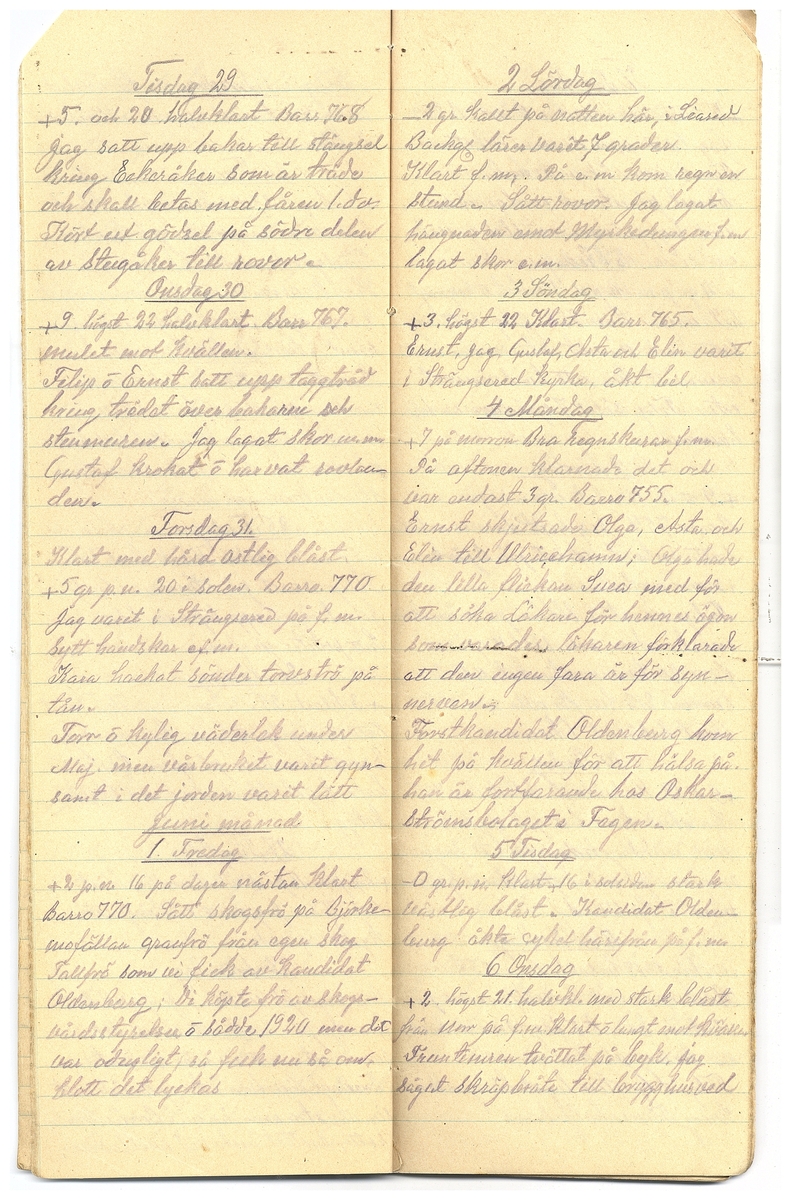 Tisdag 29
+5. och 20 halvklart Barr. 768
Jag satt upp bakar till stängsel
kring Eekeråker som är träde
och skall betas med fåren 1. dv.
Kört ut gödsel på södra delen
av Stugåker till rovor.
Onsdag 30
+9. högst 22 halvklart Barr 767.
mulet mot kvällen.
Filip o Ernst satt upp taggtråd
kring trädet över bakaren och
stenmuren. Jag lagat skor m.m.
Gustaf krokat o harvat rovlan-
den.
Torsdag 31.
Klart med hård ostlig blåst.
+5 gr p.n. 20 i solen. Barro. 770
Jag varit i Strängsered på f.m.
Sytt handskar e.f.m.
Kaia hackat sönder torvströ på
tån.
Torr o kylig väderlek under
Maj. men vårbruket varit gyn-
samt i det jorden varit lätt
Juni månad.
1. Fredag
+2 p.n. 16 på dagen nästan klart
Barro 770. Sått skogsfrö på Björke-
mofällan granfrö från egen skog
Tallfrö som vi fick av Kandidat
Oldenberg; Vi köpte frö av skogs-
vårdsstyrelsen o sådde 1920 men det
var odugligt, så fick nu så om.
klott det lyckas
2 Lördag
-2 gr. kallt på natten här, i Liared
Backg lärer varit 7 grader.
Klart f.m. På e.m kom regn en
stund. Sått rovor. Jag lagat
hängnaden emot f.m
lagat skor e.m.
3 Söndag
+3. högst 22 Klart. Barr. 765.
Ernst, jag, Gustaf, Asta och Elin varit
i Strängsered kyrka, åkt bil
4 Måndag
+7 på morron Bra regnskurar f.m.
På aftonen klarnade det och
var endast 3 gr. Barro 755.
Ernst skjutsade Olga, Asta och
Elin till Ulricehamn; Olga hade
den lilla flickan Svea med för
att söka Läkare för hennes ögon
läkaren förklarade
att den ingen fara är för syn-
nerven.
Forstkandidat Oldenburg kom
hit på kvällen för att hälsa på.
han är fortfarande hos Oskar-
strömsbolaget i Fagen.
5 Tisdag
-0 gr. p.n. klart +16 i solsiden stark
västlig blåst. Kandidat Olden-
burg åkte cykel härifrån på f.m.
6 Onsdag
+2. högst 21. halvkl. med stark blåst
från norr på f.m. klart o lungt mot kvällen
Fruntimren tvättat på byk. jag
sågat skräpbråte till brygghusved